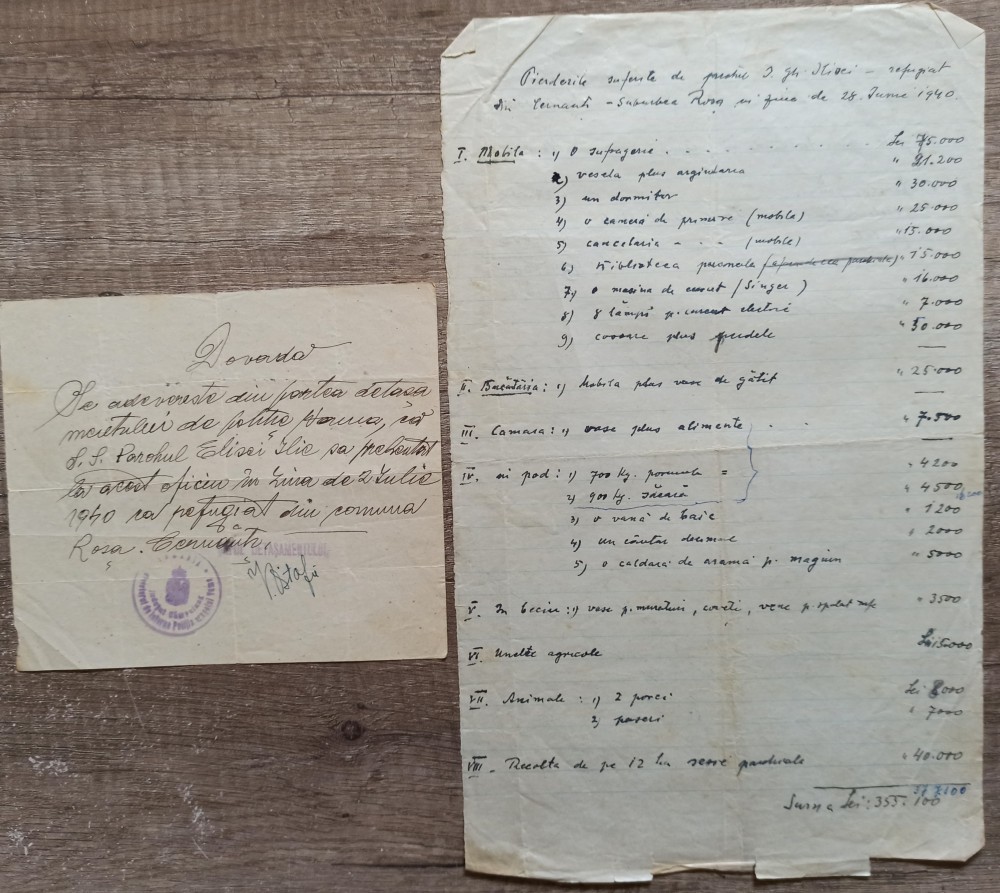 Dovada
Se adevereste din partea detasa
mentului de politie Herma, că
S. S. Parohul Elisei Ilie sa prezentat
la acest oficiu în ziua de 2 Iulie
1940 ca refugiat din comuna
Rosa. Cernăuti.
ȘEFUL DETAȘAMENTULUI,
ROMANIA
Pierderile suferite de parohul I. Gh. Elisei – refugiat
din Cernauti – Suburbea Rosa in ziua de 28 Iunie 1940.
I. Mobila : 1) O sufragerie . . . . . . . . . . Lei 75.000
2) vesela plus argintaria " 21.200
3) un dormitor " 30.000
4) o cameră de primire (mobila) " 25.000
5) cancelaria - . . (mobile) " 15.000
6) biblioteca personala " 15.000
7) o masina de cusut (Singer) " 16.000
8) 8 lămpi p. curent electric " 7.000
9) covoare plus perdele " 50.000
II. Bucătăria : 1) Mobila plus vase de gătit " 25.000
III. Camara : 1) vase plus alimente . . " 7.500
IV. in pod : 1) 700 kg. porumb = " 4200
2) 900 kg. săcară " 4500
3) o vană de baie " 1200
4) un cântar decimal " 2000
5) o caldară de aramă p. magiun " 5000
V. In beciu : 1) vase p. muraturi, , vase p. spalat rufe " 3500
VI. Unelte agricole Lei 15.000
VII. Animale : 1) 2 porci Lei 8000
2) paseri " 7000
VIII. Recolta de pe 12 ha sesie parohiala " 40.000
Suma Lei : 355.100